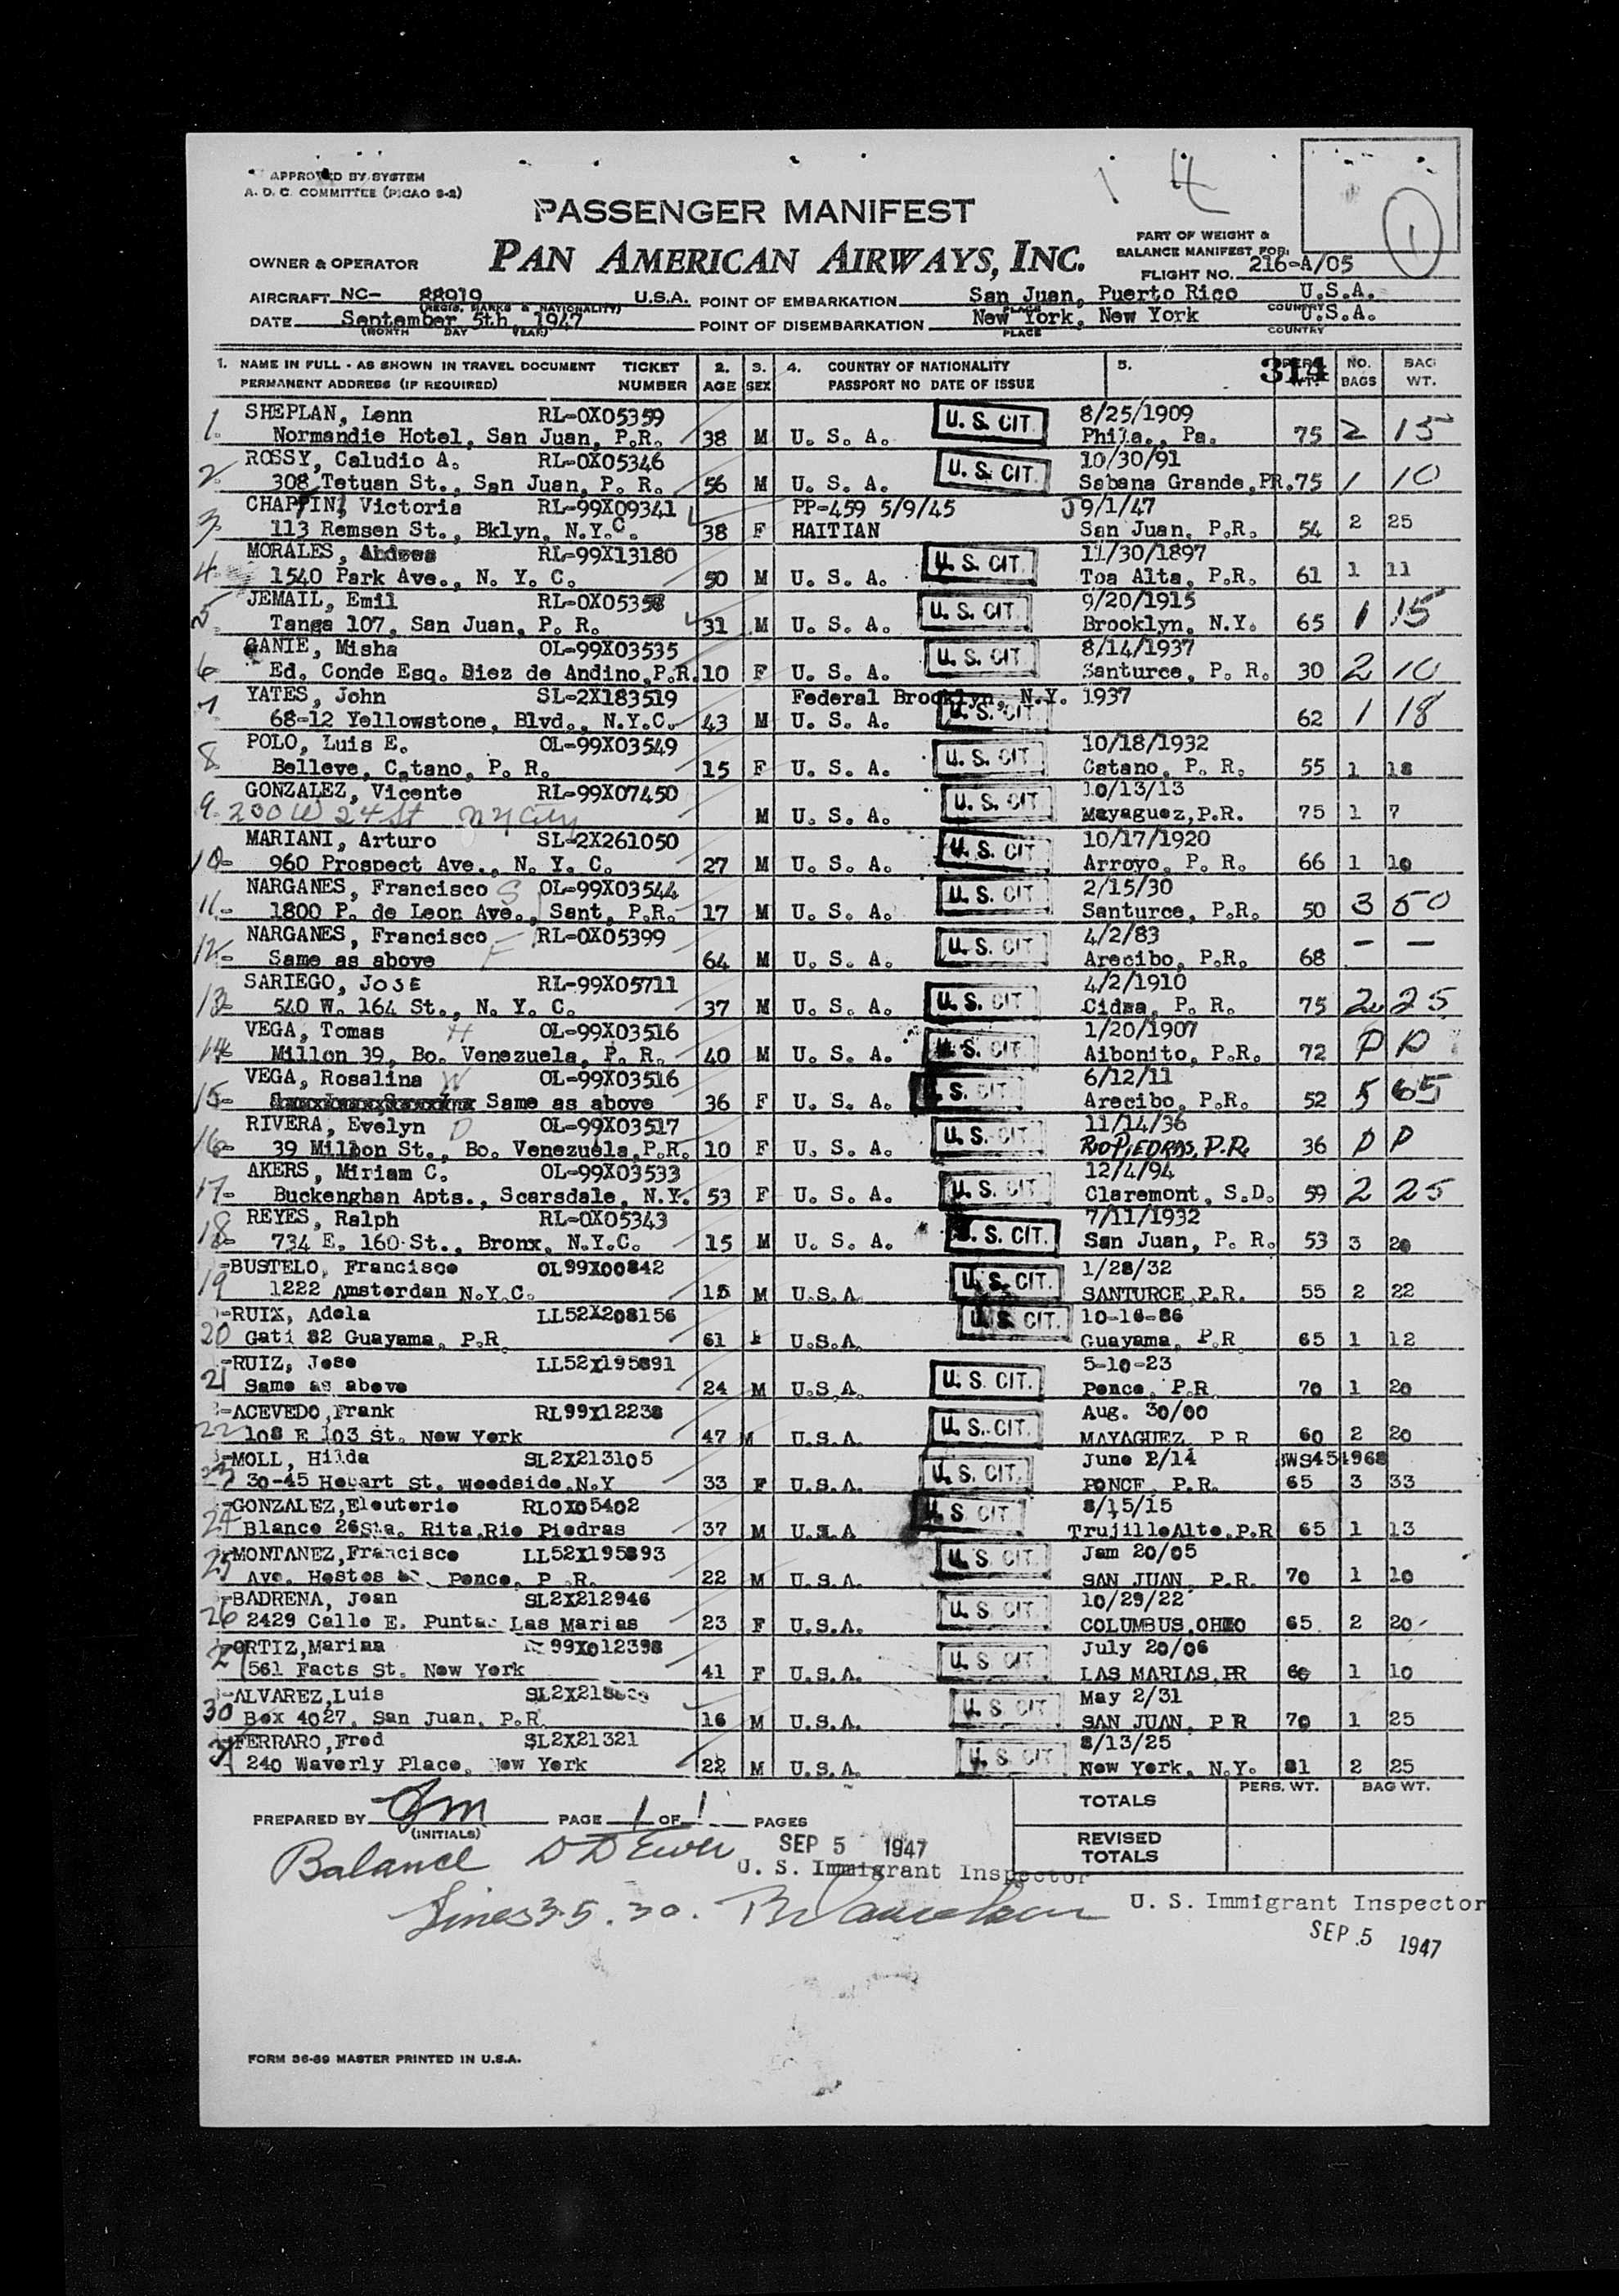 APPROVED BY SYSTEM
A. D. C. COMMITTEE (PICAO 9-2)
14
1
PASSENGER MANIFEST
PAN AMERICAN AIRWAYS, INC.
OWNER & OPERATOR
PART OF WEIGHT &
BALANCE MANIFEST FOR:
FLIGHT NO. 216-A/05
AIRCRAFT NC- 88919 U.S.A. POINT OF EMBARKATION San Juan, Puerto Rico U.S.A.
(REGIS. MARKS & NATIONALITY) PLACE COUNTRY
DATE September 5th 1947 POINT OF DISEMBARKATION New York, New York U.S.A.
(MONTH DAY YEAR) PLACE COUNTRY
1. NAME IN FULL - AS SHOWN IN TRAVEL DOCUMENT TICKET 2. 3. 4. COUNTRY OF NATIONALITY 5. PERS. NO. BAG
PERMANENT ADDRESS (IF REQUIRED) NUMBER AGE SEX PASSPORT NO DATE OF ISSUE WT. BAGS WT.
314
1. SHEPLAN, Lenn RL-0X05359 U. S. CIT. 8/25/1909
Normandie Hotel, San Juan, P.R. 38 M U. S. A. Phila., Pa. 75 2 15
2. ROSSY, Caludio A. RL-0X05346 U. S. CIT. 10/30/91
308 Tetuan St., San Juan, P. R. 56 M U. S. A. Sabana Grande,PR. 75 1 10
3. CHAPPIN, Victoria RL-99X09341 PP-459 5/9/45 9/1/47
113 Remsen St., Bklyn, N.Y.C. 38 F HAITIAN San Juan, P.R. 54 2 25
4. MORALES, RL-99X13180 U. S. CIT. 11/30/1897
1540 Park Ave., N. Y. C. 50 M U. S. A. Toa Alta, P.R. 61 1 11
5. JEMAIL, Emil RL-0X05358 U. S. CIT. 9/20/1915
Tanga 107, San Juan, P. R. 31 M U. S. A. Brooklyn, N.Y. 65 1 15
6. GANIE, Misha OL-99X03535 U. S. CIT 8/14/1937
Ed. Conde Esq. Diez de Andino,P.R. 10 F U. S. A. Santurce, P. R. 30 2 10
7 YATES, John SL-2X183519 Federal Brooklyn, N.Y. 1937
68-12 Yellowstone, Blvd., N.Y.C. 43 M U. S. A. U. S. CIT. 62 1 18
8. POLO, Luis E. OL-99X03549 U. S. CIT. 10/18/1932
Belleve, Catano, P. R. 15 F U. S. A. Catano, P. R. 55 1 18
9. GONZALEZ, Vicente RL-99X07450 U. S. CIT 10/13/13
200 W 24 St NY City M U. S. A. Mayaguez,P.R. 75 1 7
10- MARIANI, Arturo SL-2X261050 U. S. CIT 10/17/1920
960 Prospect Ave., N. Y. C. 27 M U. S. A. Arroyo, P. R. 66 1 10
11- NARGANES, Francisco S OL-99X03544 U. S. CIT 2/15/30
1800 P. de Leon Ave., Sant, P.R. 17 M U. S. A. Santurce, P.R. 50 3 50
12- NARGANES, Francisco F RL-0X05399 U. S. CIT 4/2/83
Same as above 64 M U. S. A. Arecibo, P.R. 68 - -
13- SARIEGO, JOSE RL-99X05711 U. S. CIT 4/2/1910
540 W. 164 St., N. Y. C. 37 M U. S. A. Cidra, P. R. 75 2 25
14- VEGA, Tomas H OL-99X03516 U. S. CIT 1/20/1907
Millon 39, Bo. Venezuela, P. R. 40 M U. S. A. Aibonito, P.R. 72 P P
15- VEGA, Rosalina W OL-99X03516 U. S. CIT 6/12/11
Same as above 36 F U. S. A. Arecibo, P.R. 52 5 65
16- RIVERA, Evelyn D OL-99X03517 U. S. CIT 11/14/36
39 Millon St., Bo. Venezuela,P.R. 10 F U. S. A. RIO PIEDRAS, P.R. 36 P P
17- AKERS, Miriam C. OL-99X03533 U. S. CIT 12/4/94
Buckenghan Apts., Scarsdale, N.Y. 53 F U. S. A. Claremont, S.D. 59 2 25
18- REYES, Ralph RL-0X05343 U. S. CIT. 7/11/1932
734 E. 160 St., Bronx, N.Y.C. 15 M U. S. A. San Juan, P. R. 53 3 20
19 BUSTELO, Francisco OL99X00842 U. S. CIT. 1/28/32
1222 Amsterdan N.Y.C. 15 M U.S.A SANTURCE,P.R. 55 2 22
20 RUIX, Adela LL52X208156 U. S. CIT. 10-16-86
Gati 82 Guayama, P.R 61 F U.S.A Guayama, P.R 65 1 12
21 RUIZ, Jose LL52X195891 U. S. CIT. 5-10-23
Same as above 24 M U.S.A. Ponce, P.R 70 1 20
22 ACEVEDO,Frank RL99X12238 U. S. CIT. Aug. 30/00
108 E 103 St. New York 47 M U.S.A MAYAGUEZ P R 60 2 20
23 MOLL, Hilda SL2X213105 U. S. CIT. June 2/14
30-45 Hobart St. Woodside,N.Y 33 F U.S.A. PONCE, P.R. 65 3 33
24 GONZALEZ,Eleuterio RLOX05402 U. S. CIT 8/15/15
Blanco 26Sta. Rita,Rio Piedras 37 M U.S.A TrujilloAlto,P.R 65 1 13
25 MONTANEZ,Francisco LL52X195893 U. S. CIT Jam 20/05
Ave. Hostos Ponce, P.R. 22 M U.S.A. SAN JUAN, P.R. 70 1 10
26 BADRENA, Joan SL2X212946 U. S. CIT 10/29/22
2429 Calle E. Puntas Las Marias 23 F U.S.A. COLUMBUS,OHIO 65 2 20
29 ORTIZ,Marina 99X012398 U. S. CIT July 20/06
561 Facts St. New York 41 F U.S.A. LAS MARIAS,PR 60 1 10
30 ALVAREZ,Luis U. S. CIT. May 2/31
Box 4027, San Juan, P.R 16 M U.S.A. SAN JUAN, P R 70 1 25
31 FERRARO,Fred SL2X21321 U. S. CIT 8/13/25
240 Waverly Place, New York 22 M U.S.A. New York, N.Y. 81 2 25
PERS. WT. BAG WT.
TOTALS
REVISED
TOTALS
PREPARED BY (INITIALS) PAGE 1 OF 1 PAGES
SEP 5 1947
Balance
U. S. Immigrant Inspector
Lines 3.5.30.
U. S. Immigrant Inspector
SEP 5 1947
FORM 36-69 MASTER PRINTED IN U.S.A.